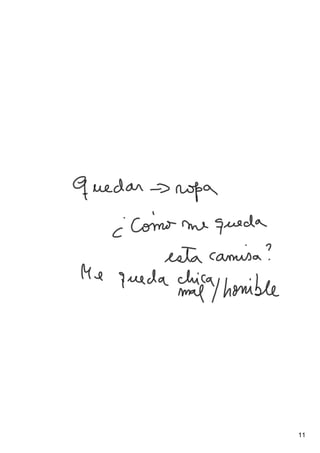 Quedar → ropa
¿Cómo me queda
esta camisa?
Me queda chica/horrible
mal
11